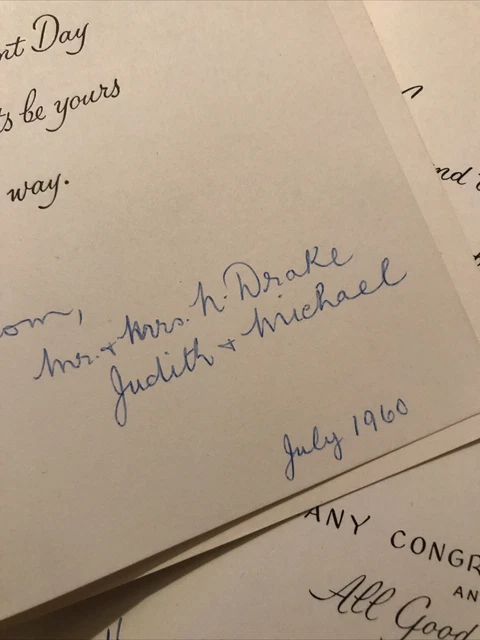 nt Day
ts be yours
way.
om,
Mr. + Mrs. N. Drake
Judith + Michael
July 1960
nd
ANY CONGR
AN
All Good